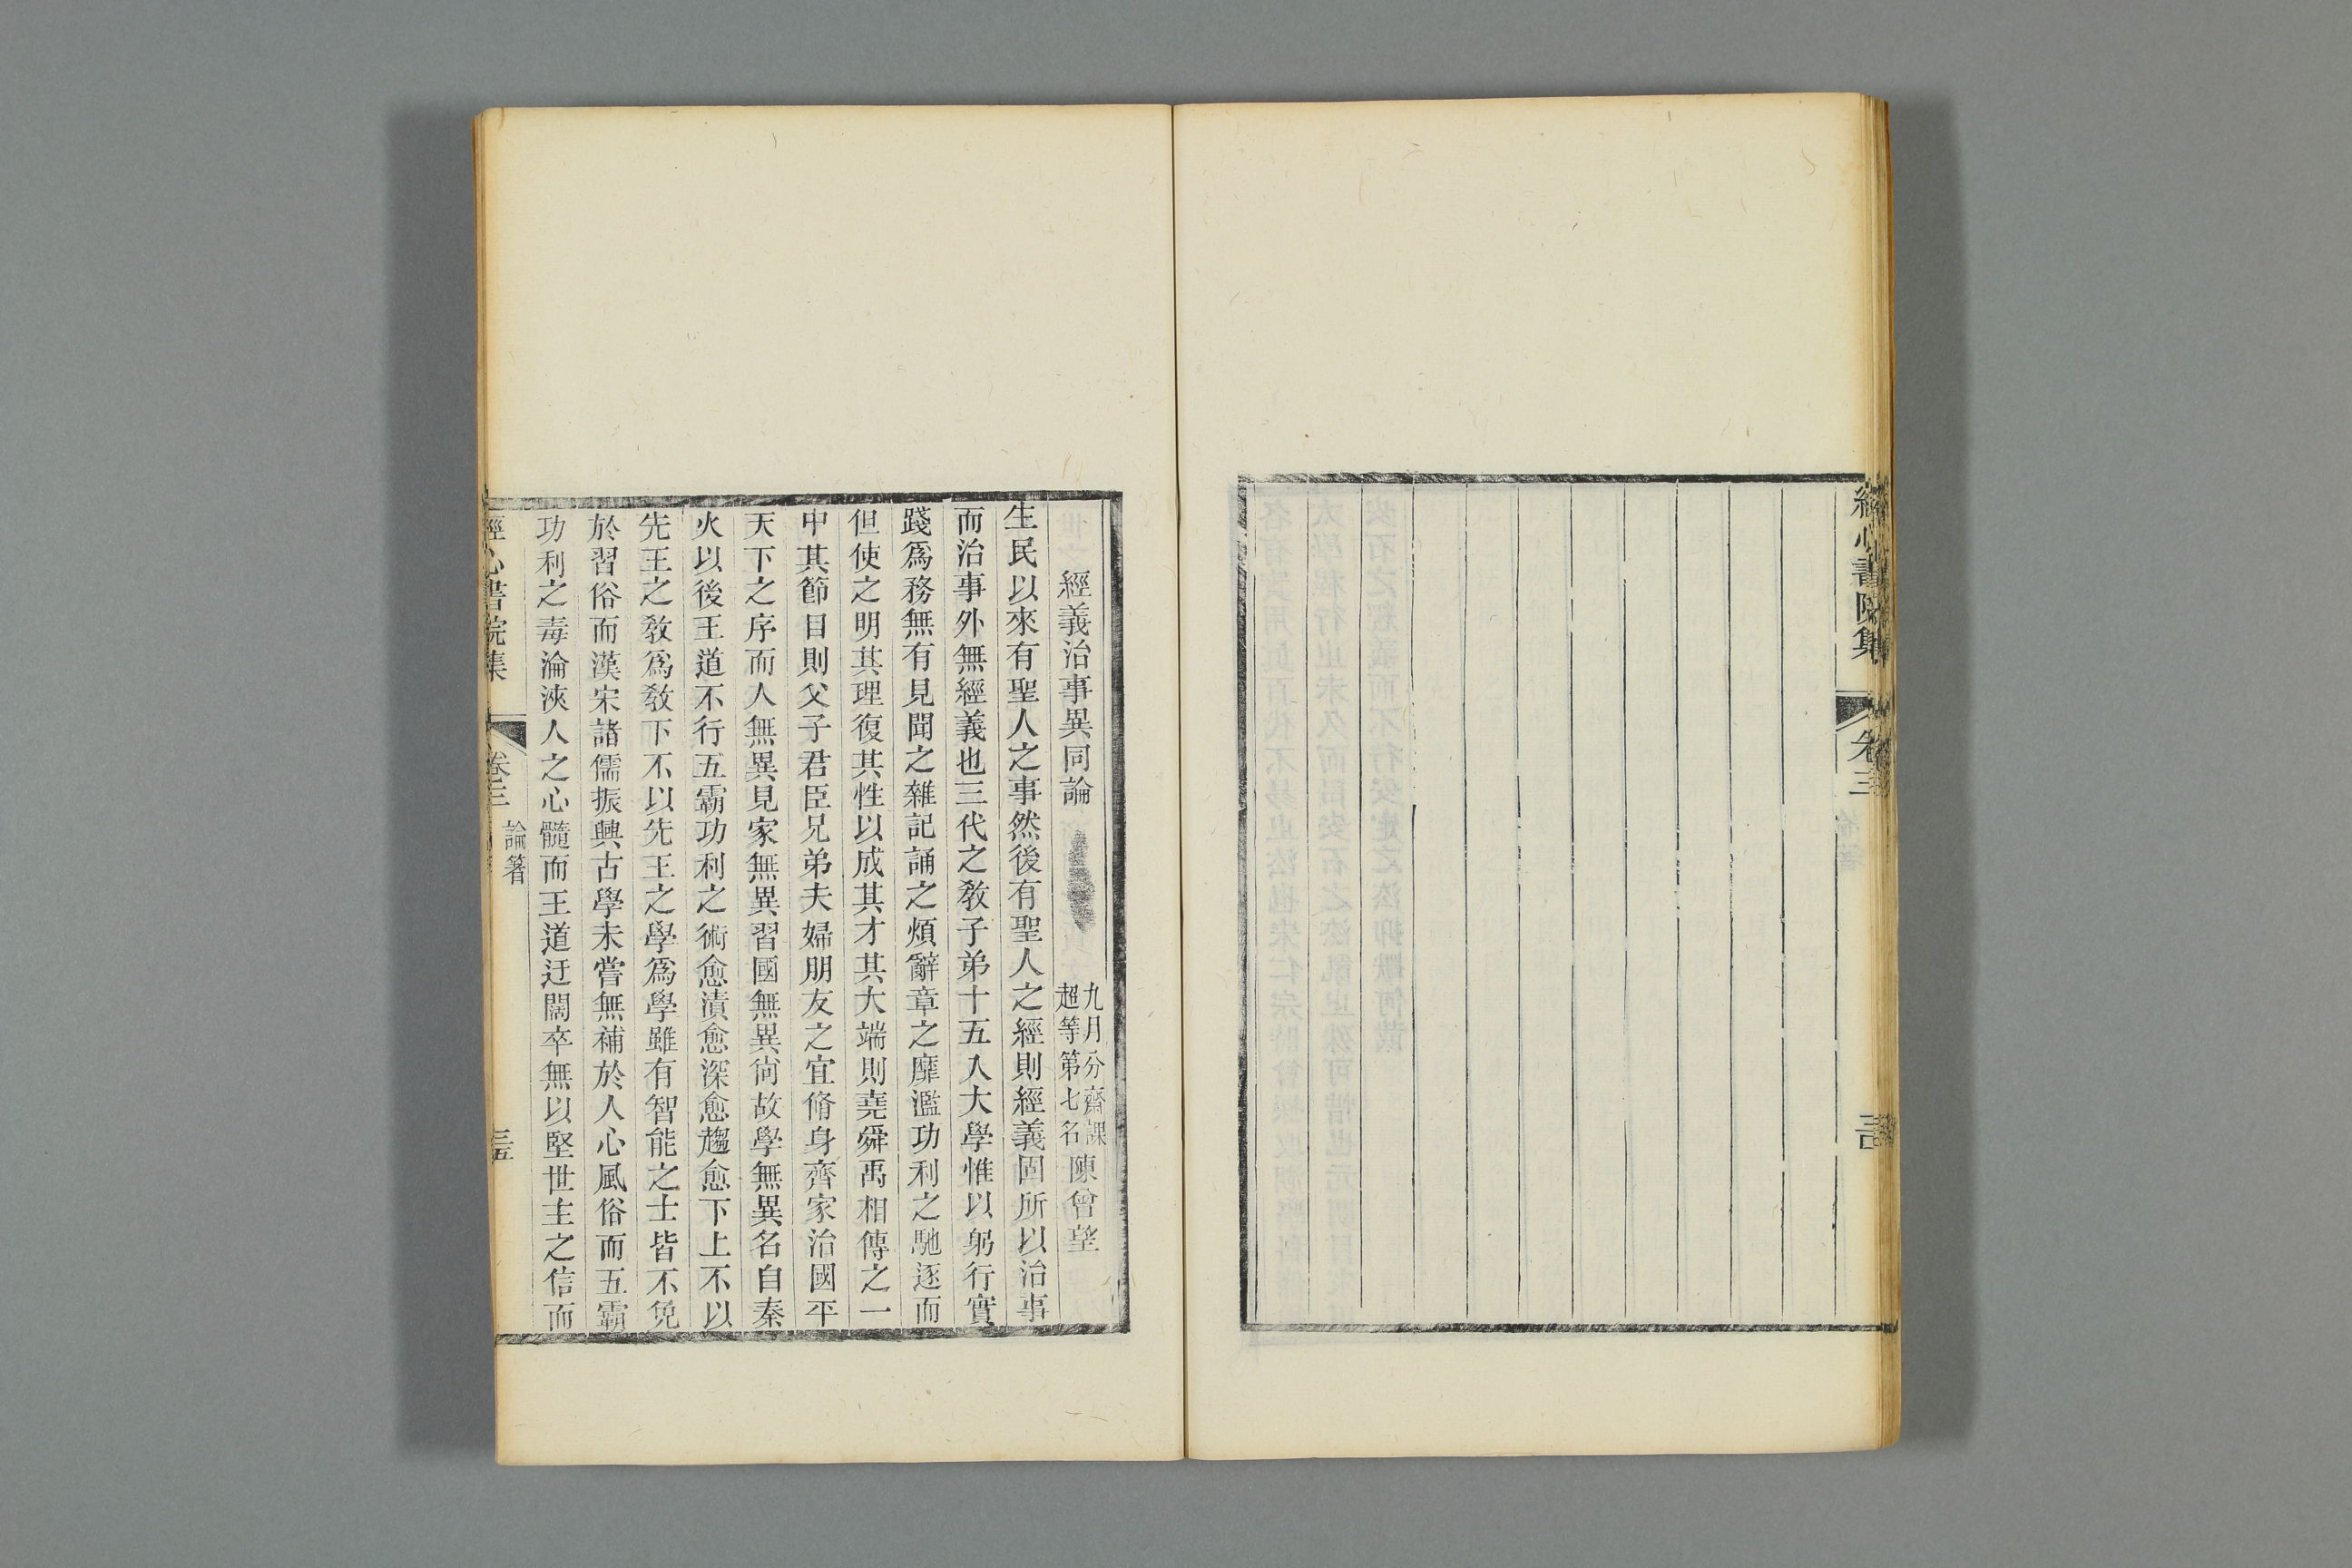 經心書院集
卷三
經義治事異同論
九月分齋課
超等第七名
陳曾望
生民以來有聖人之事然後有聖人之經則經義固所以治事
而治事外無經義也三代之教子弟十五入大學惟以躬行實
踐爲務無有見聞之雜記誦之煩辭章之靡濫功利之馳逐而
但使之明其理復其性以成其才其大端則堯舜禹相傳之一
中其節目則父子君臣兄弟夫婦朋友之宜脩身齊家治國平
天下之序而人無異見家無異習國無異尙故學無異名自秦
火以後王道不行五霸功利之術愈漬愈深愈趨愈下上不以
先王之敎爲敎下不以先王之學爲學雖有智能之士皆不免
於習俗而漢宋諸儒振興古學未嘗無補於人心風俗而五霸
功利之毒淪浹人之心髓而王道迂闊卒無以堅世主之信而
經心書院集
卷三
論箸
三五